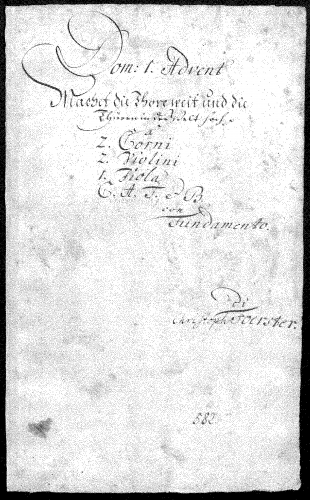 Dom: 1. Advent
Machet die Thore weit und die
Thüren in der Welt hoch.
a
2. Corni
2. Violini
1. Viola
C. A. T. e B.
con
Fundamento.
di
Christoph Foerster.